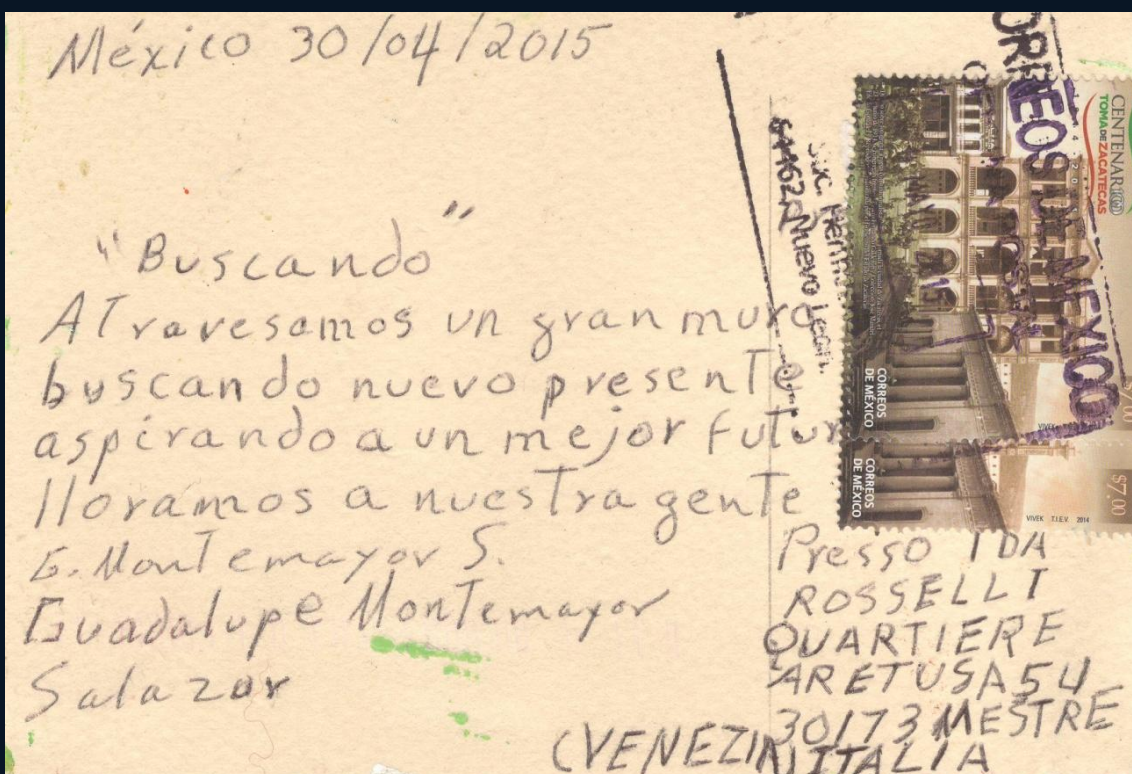 México 30/04/2015
"Buscando"
Atravesamos un gran muro
buscando nuevo presente
aspirando a un mejor futuro
lloramos a nuestra gente
G. Montemayor S.
Guadalupe Montemayor
Salazar
CENTENARIO
TOMA DE ZACATECAS
CORREOS DE MEXICO
Suc.
64162 Nuevo León.
CORREOS
DE MÉXICO
$7.00
CORREOS
DE MÉXICO
$7.00
VIVEK T.I.E.V. 2014
Presso IDA
ROSSELLI
QUARTIERE
ARETUSA 54
30173 MESTRE
(VENEZIA) ITALIA